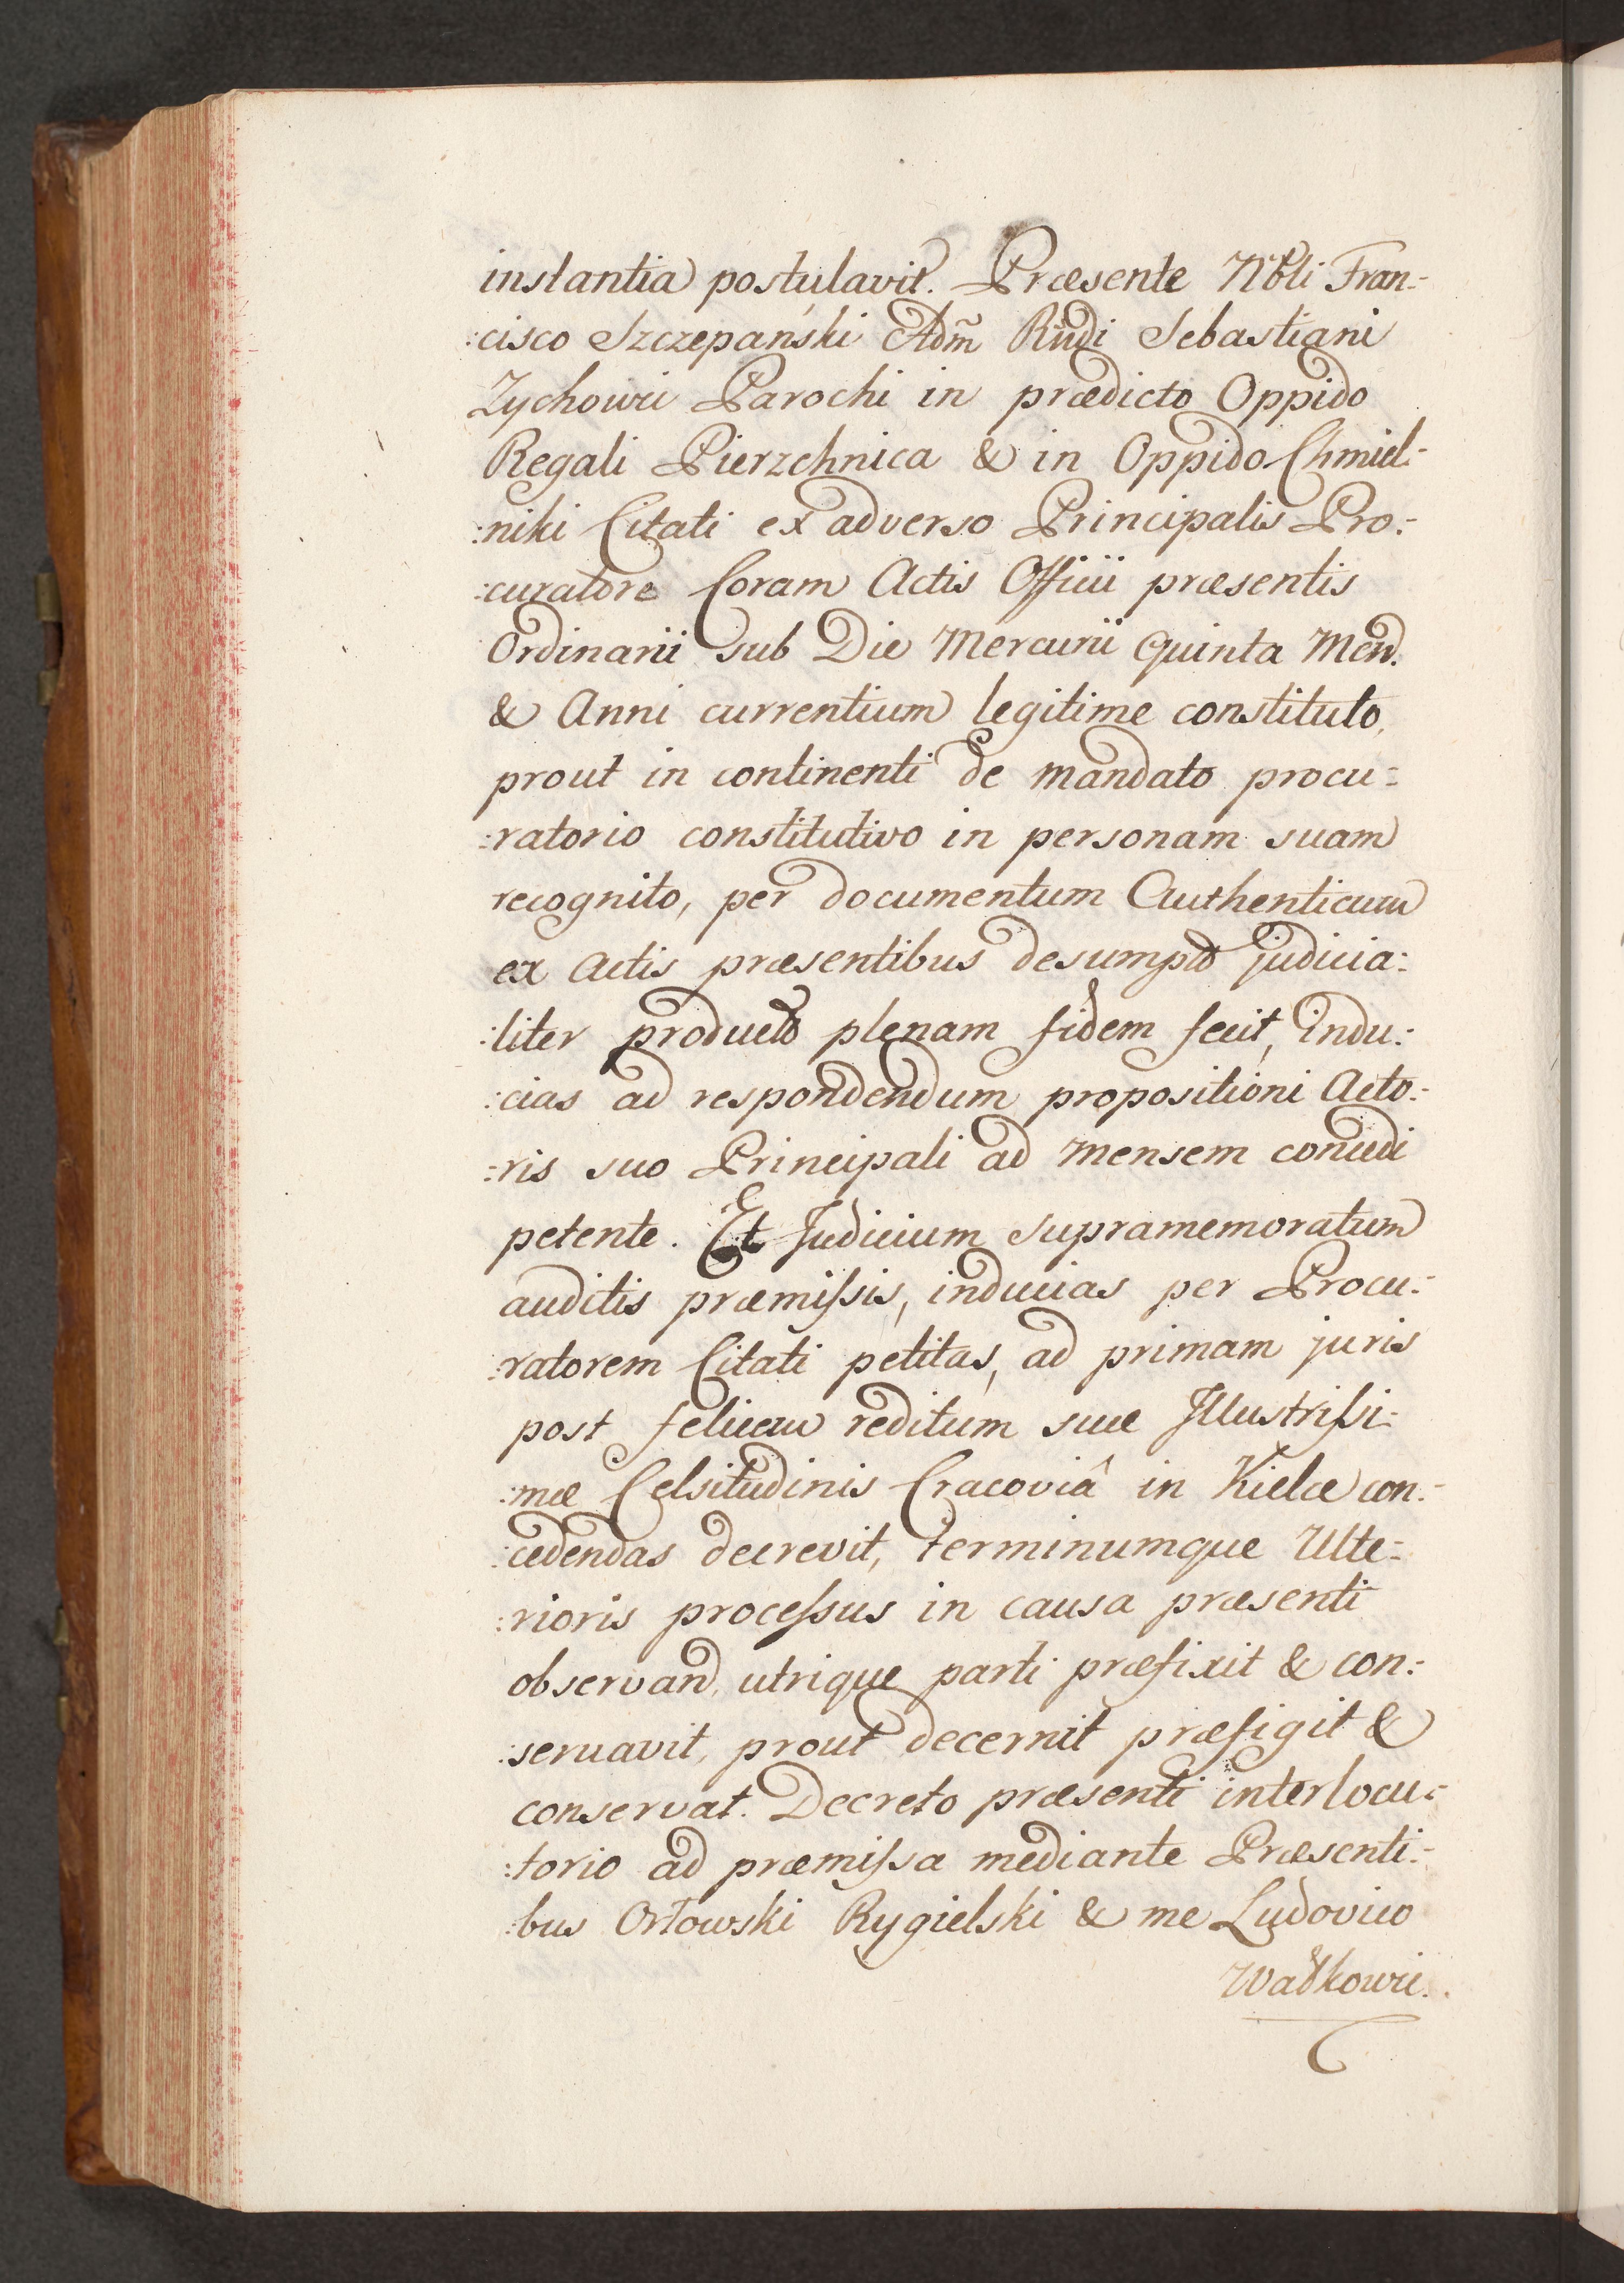 instantia postulavit. Præsente Nbli Fran-
:cisco Szczepański Adm̃ Rndi Sebastiani
Zychowic Parochi in prædicto Oppido
Regali Pierzchnica & in Oppido Chmiel:-
:niki Citati ex adverso Principalis Pro:-
:curatore Coram Actis Officii præsentis
Ordinarii sub Die Mercurii Quinta Men.
& Anni currentium legitime constituto,
prout in continenti de mandato procu:-
:ratorio constitutivo in personam suam
recognito, per documentum Authenticum
ex Actis præsentibus desumpto judicia:
:liter producto plenam fidem fecit, Indu:
:cias ad respondendum propositioni Acto:-
:ris suo Principali ad mensem concedi
petente. Et Judicium supramemoratum
auditis præmissis, inducias per Procu:-
:ratorem Citati petitas, ad primam juris
post felicem reditum suæ Illustrissi:-
:mæ Celsitudinis Cracoviâ in Kielce con:-
:cedendas decrevit, terminumque Ulte:-
:rioris processus in causa præsenti
observand. utrique parti præfixit & con:-
:servavit, prout decernit præfigit &
conservat. Decreto præsenti interlocu:-
:torio ad præmissa mediante Præsenti:-
:bus Orłowski Rygielski & me Ludovico
Wadkowic.